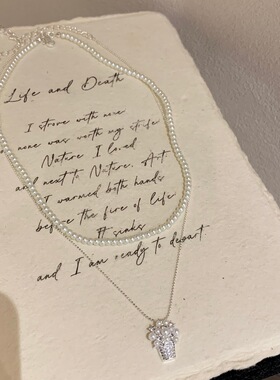 Life and Death
I strove with none
none was worth my strife
Nature I loved
and next to Nature, Art
I warmed both hands
before the fire of life
It sinks
and I am ready to depart